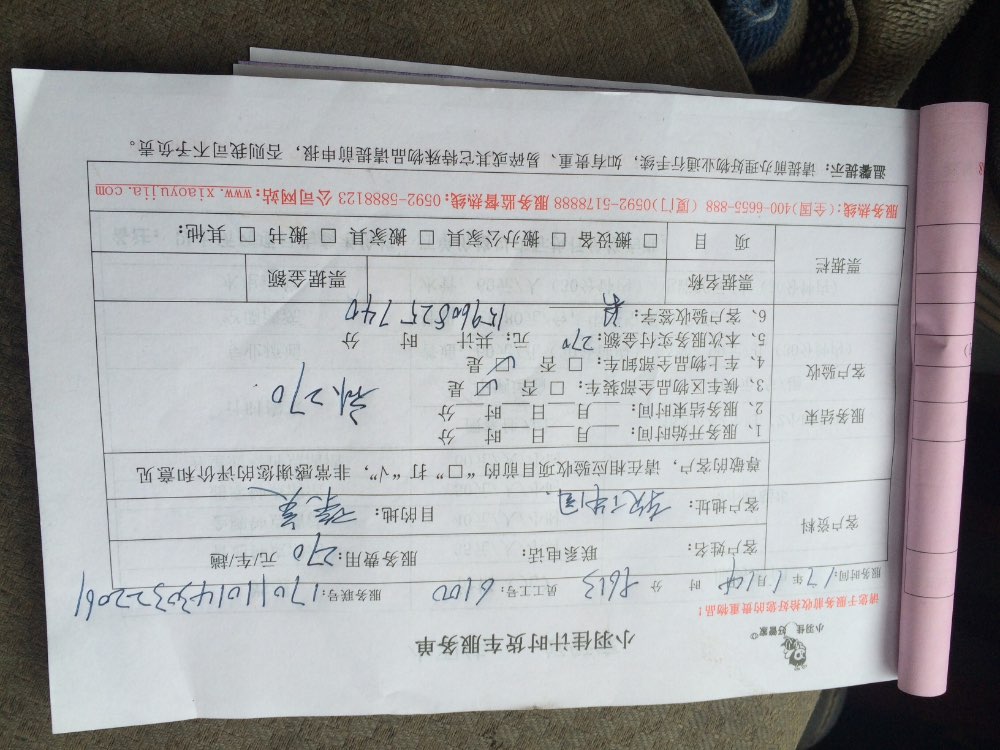 小羽佳 好管家
小羽佳计时货车服务单
请您于服务前收拾好您的贵重物品！
服务时间：17年1月14日 时 分 员工工号：6100 服务联号：1701101430322061
客户资料
客户姓名： 联系电话： 服务费用：270 元/车/趟
客户地址： 目的地：
尊敬的客户，请在相应验收项目前的“□”打“√”，非常感谢您的评价和意见
服务结束
客户验收
1、服务开始时间： 月 日 时 分
2、服务结束时间： 月 日 时 分
3、候车区物品全部装车： □ 否 □ 是
4、车上物品全部卸车： □ 否 □ 是
5、本次服务实付金额：270 元；共计： 时 分
6、客户验收签字： 15960825740
270
票据栏
票据名称 票据金额
项 目 □ 搬设备 □ 搬办公家具 □ 搬家具 □ 搬书 □ 其他：
服务热线：(全国)400-6655-888 (厦门)0592-5178888 服务监督热线：0592-5888123 公司网站：www.xiaoyujia.com
温馨提示：请提前办理好物业通行手续，如有贵重、易碎或其它特殊物品请提前申报，否则我司不予负责。